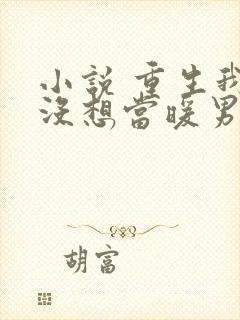 小說 重生我
沒想當暖男
胡富